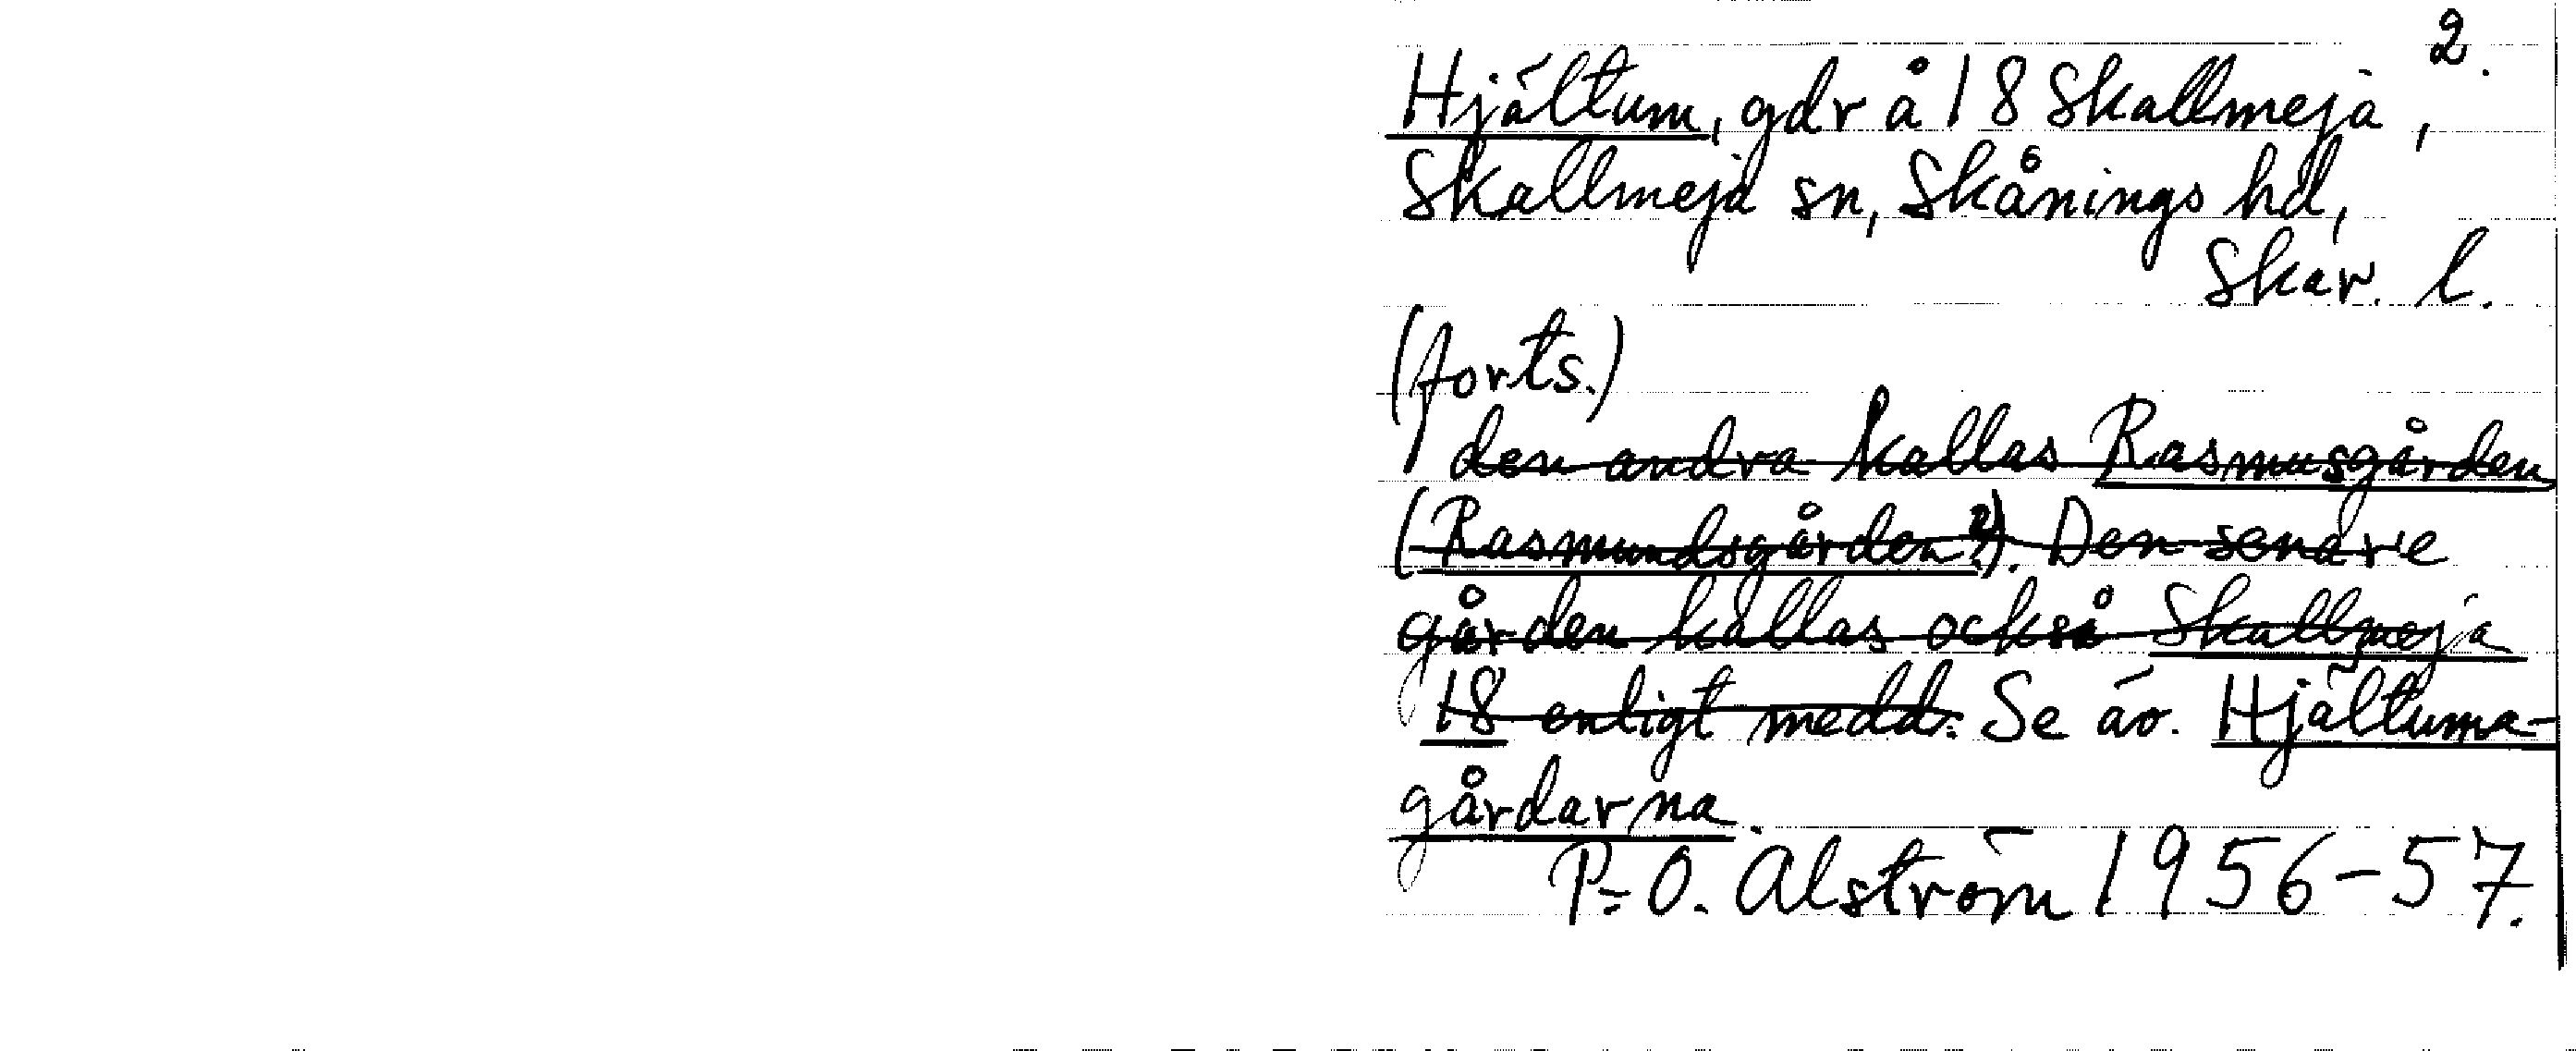 2.
Hjältum, gdr å 18 Skallmeja,
Skallmeja sn, Skånings hd,
Skar. l.
(forts.)
den andra kallas Rasmusgården
(Rasmundsgården?). Den senare
gården kallas också Skallmeja
18 enligt medd. Se äv. Hjältuma-
gårdarna.
P-O. Alström 1956-57.